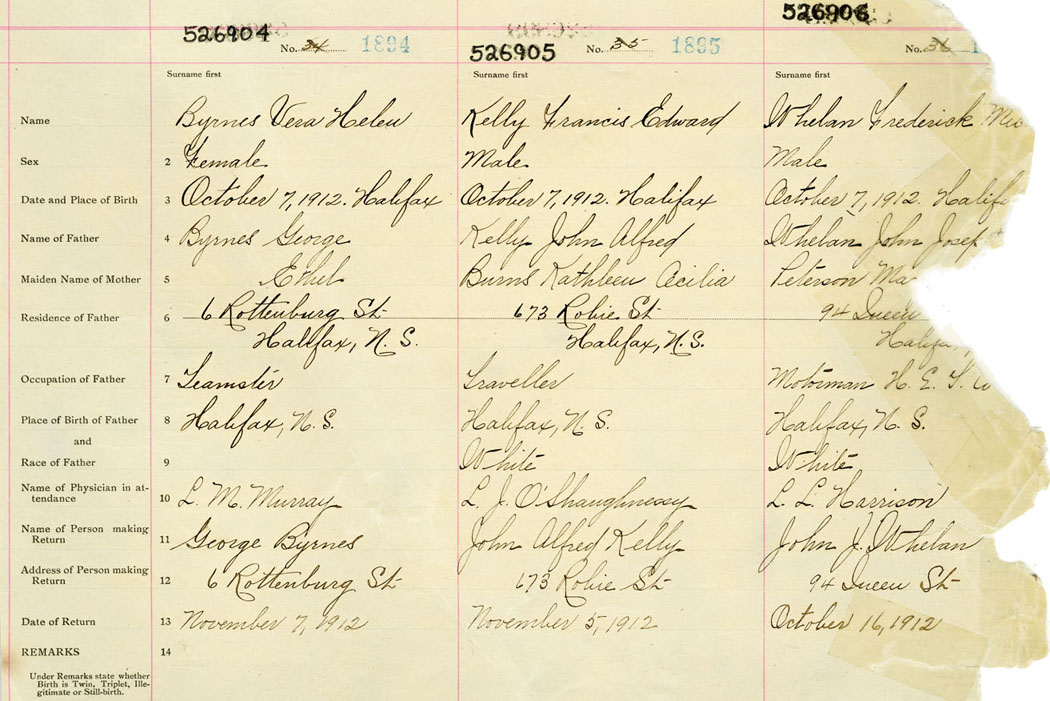 526904 526905 526906
No. 34 1894 No. 35 1895 No. 36
Surname first Surname first Surname first
Name Byrnes Vera Helen Kelly Francis Edward Whelan Frederick
Sex 2 Female Male Male
Date and Place of Birth 3 October 7, 1912. Halifax October 7, 1912. Halifax October 7, 1912. Halif
Name of Father 4 Byrnes George Kelly John Alfred Whelan John Josep
Maiden Name of Mother 5 Ethel Burns Kathleen Cecilia Peterson Ma
Residence of Father 6 6 Rottenburg St. 673 Robie St. 94 Queen
Halifax, N. S. Halifax, N.S. Halifax,
Occupation of Father 7 Teamster Traveller Motorman H. E. T. Co
Place of Birth of Father 8 Halifax, N. S. Halifax, N. S. Halifax, N. S.
and
Race of Father 9 White White
Name of Physician in at-
tendance 10 L. M. Murray L. J. O'Shaughnessy L. L. Harrison
Name of Person making
Return 11 George Byrnes John Alfred Kelly John J. Whelan
Address of Person making
Return 12 6 Rottenburg St. 673 Robie St. 94 Queen St.
Date of Return 13 November 7, 1912 November 5, 1912 October 16, 1912
REMARKS 14
Under Remarks state whether
Birth is Twin, Triplet, Ille-
gitimate or Still-birth.